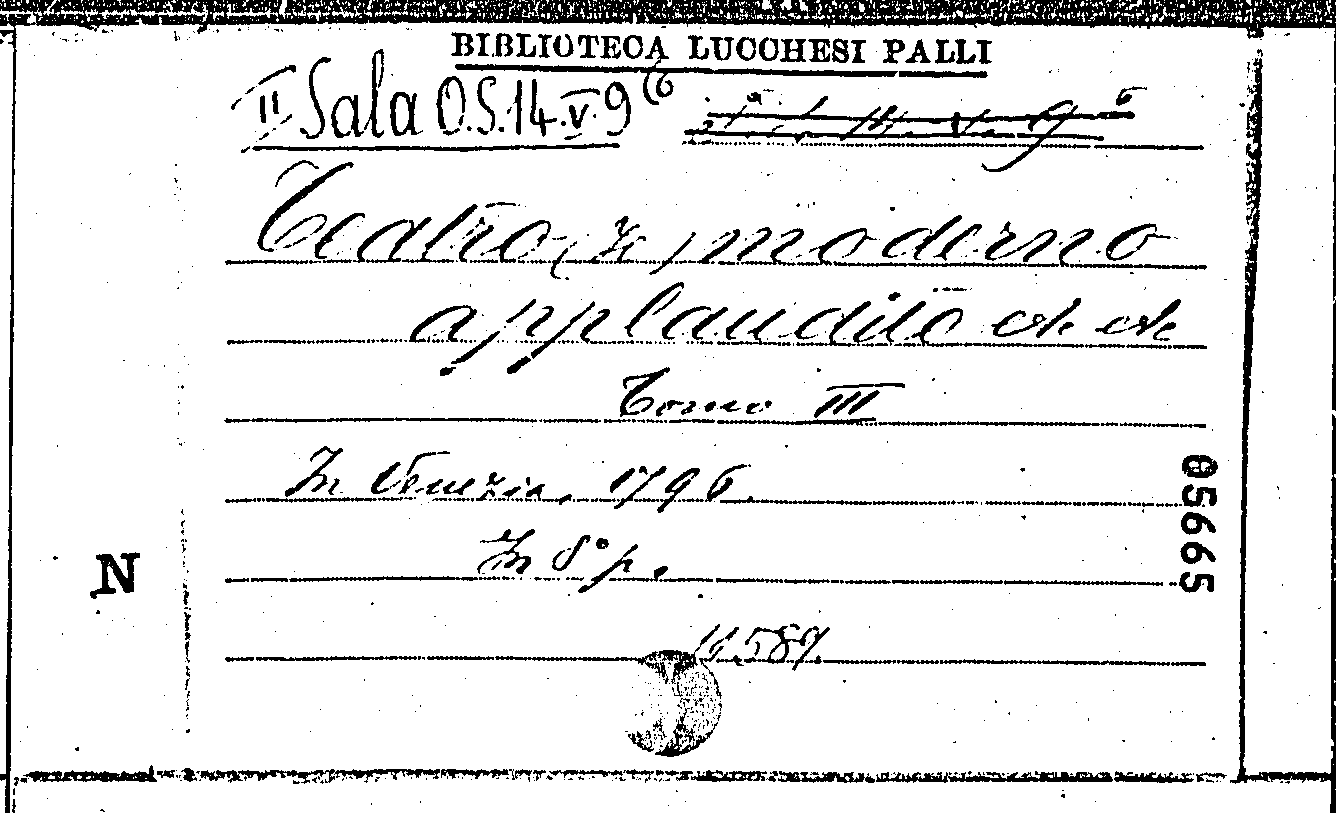 BIBLIOTECA LUCCHESI PALLI
II Sala O.S.14.V.9 (6
Teatro (Il) moderno
applaudito ec. ec.
Tomo III
In Venezia, 1796.
In 8° p.
N
05665